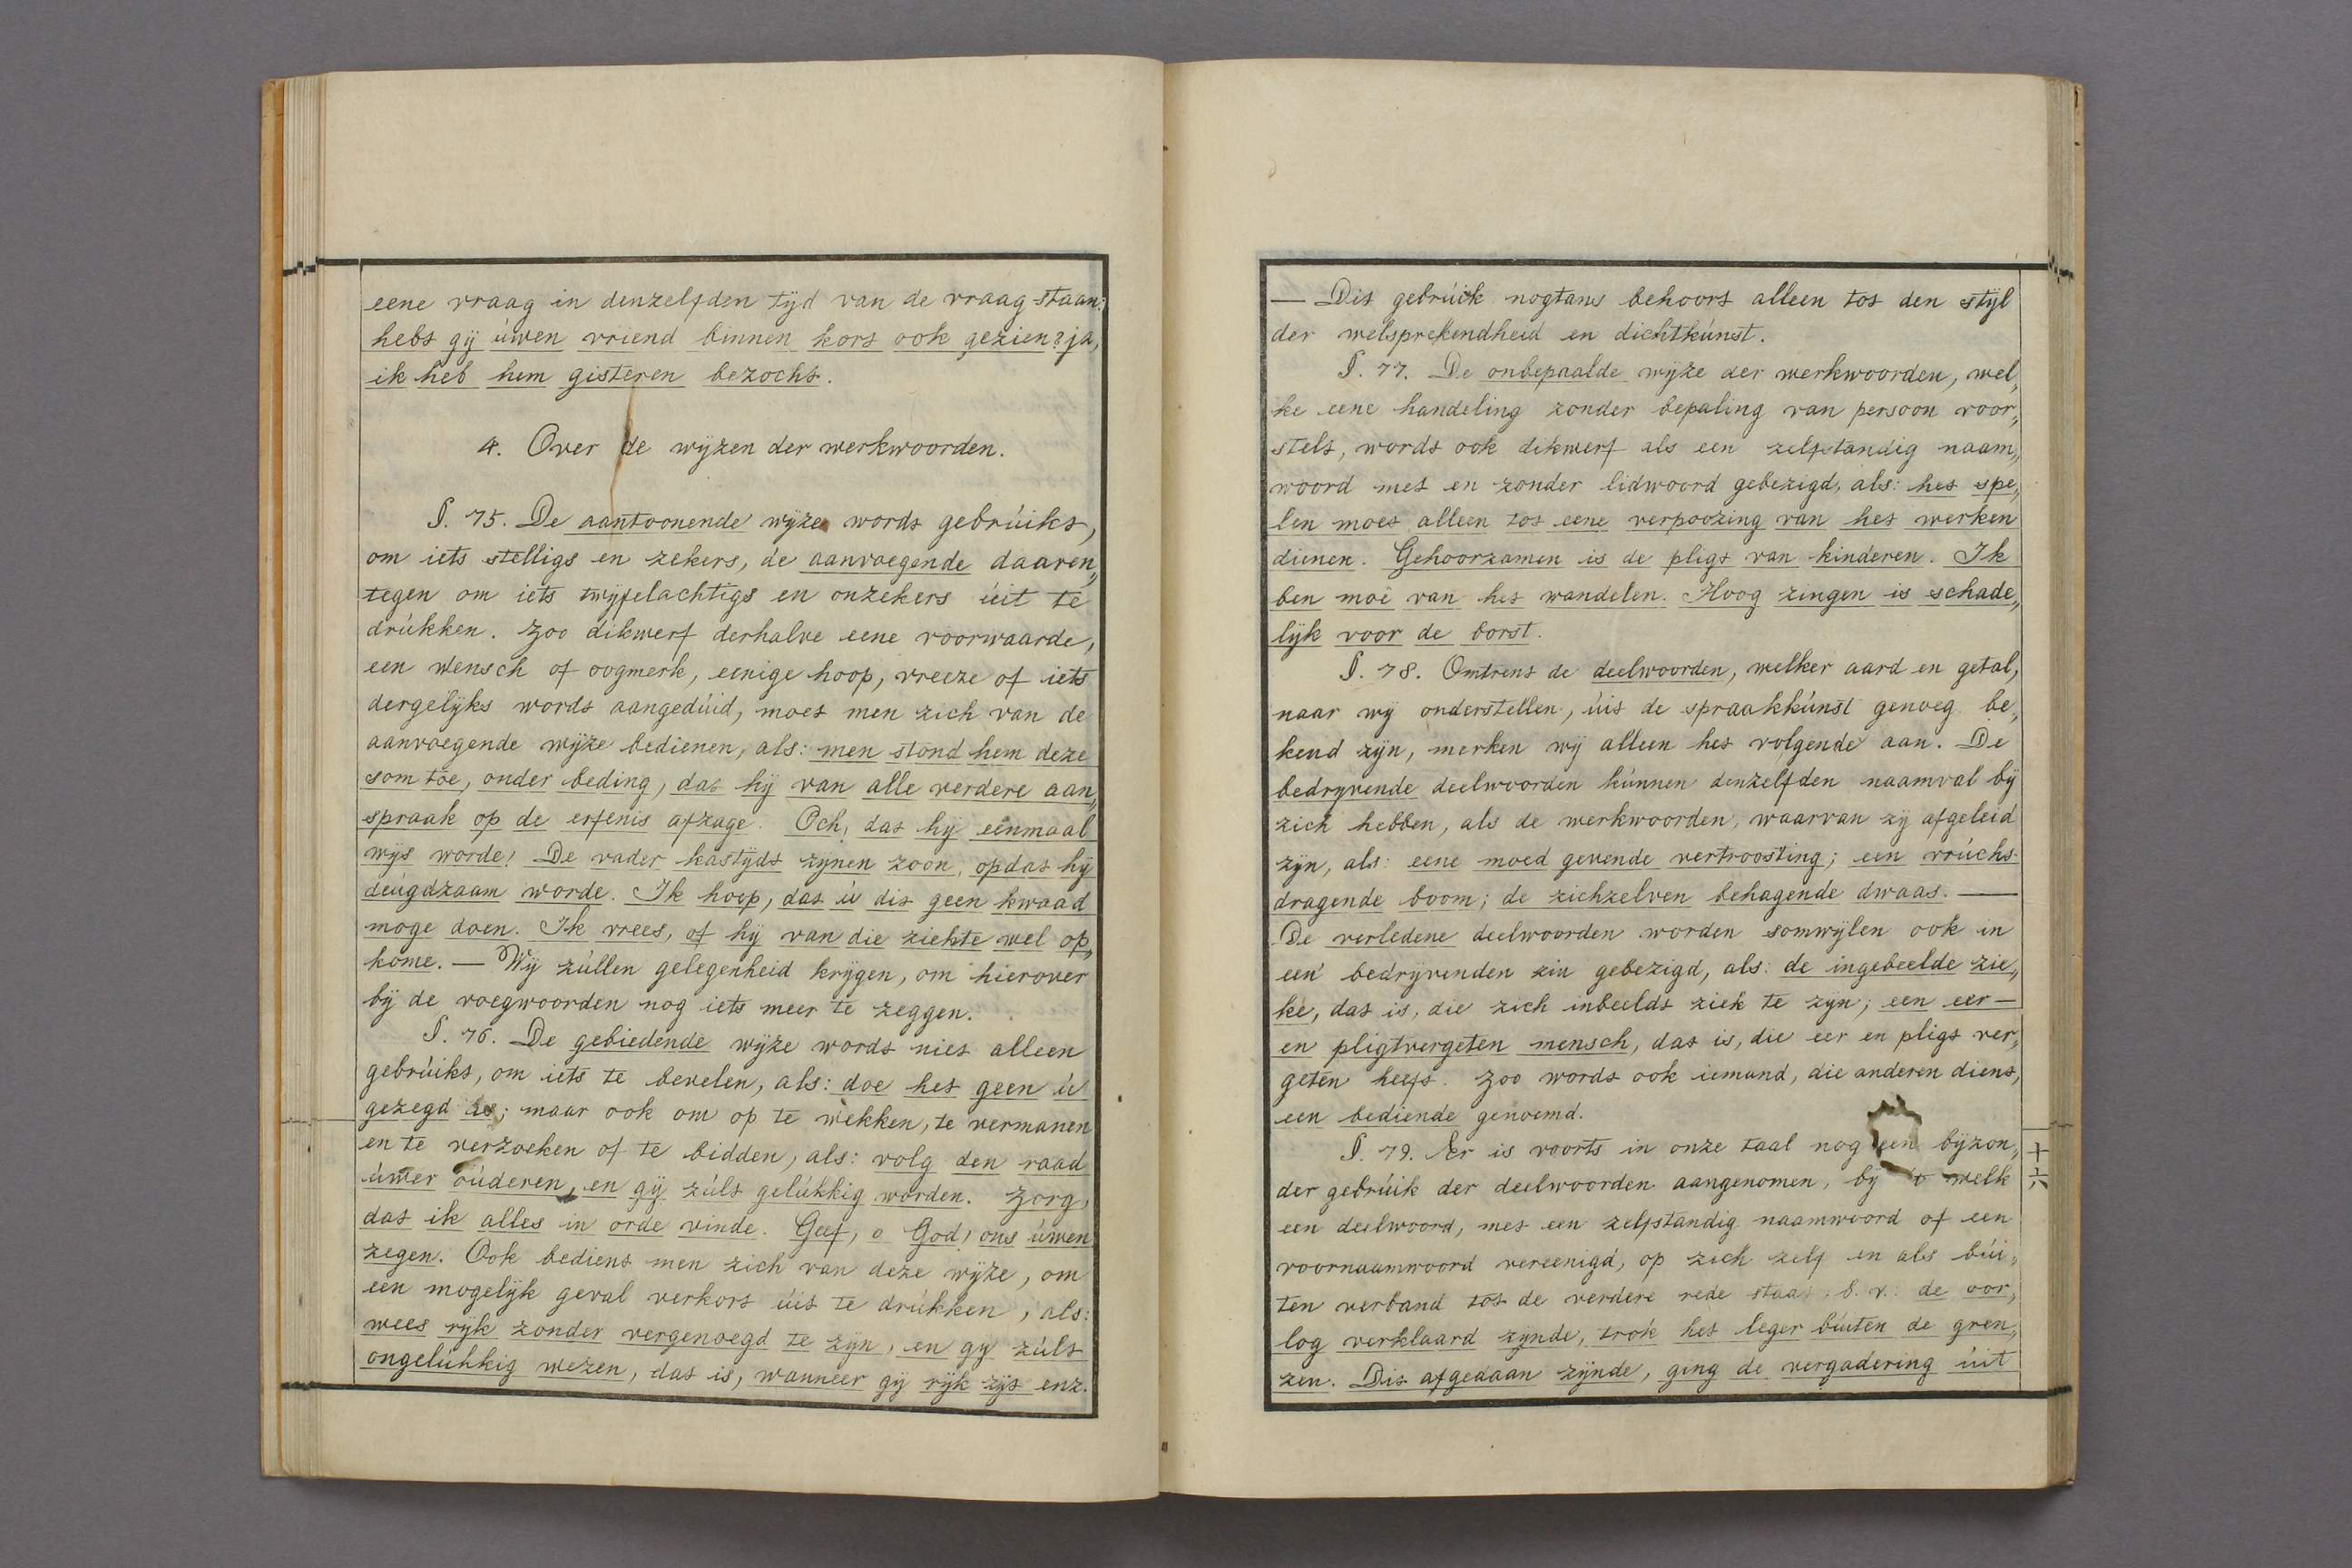 eene vraag in denzelfden tijd van de vraag staan:
hebt gij úwen vriend binnen kort ook gezien? ja,
ik heb hem gisteren bezocht.
4. Over de wijzen der werkwoorden.
§. 75. De aantoonende wijze wordt gebrúikt,
om iets stelligs en zekers, de aanvoegende daaren„
tegen om iets twijfelachtigs en onzekers úit te
drúkken. Zoo dikwerf derhalve eene voorwaarde,
een wensch of oogmerk, eenige hoop, vreeze of iets
dergelijks wordt aangedúid, moet men zich van de
aanvoegende wijze bedienen, als: men stond hem deze
som toe, onder beding, dat hij van alle verdere aan„
spraak op de erfenis afzage. Och! dat hij eenmaal
wijs worde! De vader kastijdt zijnen zoon, opdat hij
deúgdzaam worde. Ik hoop, dat ú dit geen kwaad
moge doen. Ik vrees, of hij van die ziekte wel op„
kome. — Wij zúllen gelegenheid krijgen, om hierover
bij de voegwoorden nog iets meer te zeggen.
§. 76. De gebiedende wijze wordt niet alleen
gebrúikt, om iets te bevelen, als: doe het geen ú
gezegd is; maar ook om op te wekken, te vermanen
en te verzoeken of te bidden, als: volg den raad
úwer oúderen, en gij zúlt gelúkkig worden. Zorg,
dat ik alles in orde vinde. Geef, o God! ons úwen
zegen. Ook bedient men zich van deze wijze, om
een mogelijk geval verkort úit te drúkken, als:
wees rijk zonder vergenoegd te zijn, en gij zúlt
ongelúkkig wezen, dat is, wanneer gij rijk zijt enz.
— Dit gebrúik nogtans behoort alleen tot den stijl
der welsprekendheid en dichtkúnst.
§. 77. De onbepaalde wijze der werkwoorden, wel„
ke eene handeling zonder bepaling van persoon voor„
stelt, wordt ook dikwerf als een zelfstandig naam„
woord met en zonder lidwoord gebezigd, als: het spe„
len moet alleen tot eene verpoozing van het werken
dienen. Gehoorzamen is de pligt van kinderen. Ik
ben moê van het wandelen. Hoog zingen is schade„
lijk voor de borst.
§. 78. Omtrent de deelwoorden, welker aard en getal,
naar wij onderstellen, úit de spraakkúnst genoeg be„
kend zijn, merken wij alleen het volgende aan. De
bedrijvende deelwoorden kúnnen denzelfden naamval bij
zich hebben, als de werkwoorden, waarvan zij afgeleid
zijn, als: eene moed gevende vertroosting; een vrúcht
dragende boom; de zichzelven behagende dwaas. —
De verledene deelwoorden worden somwijlen ook in
een bedrijvenden zin gebezigd, als: de ingebeelde zie„
ke, dat is, die zich inbeeldt ziek te zijn; een eer —
en pligtvergeten mensch, dat is, die eer en pligt ver„
geten heeft. Zoo wordt ook iemand, die anderen dient,
een bediende genoemd.
§. 79. Er is voorts in onze taal nog een bijzon„
der gebrúik der deelwoorden aangenomen, bij 't welk
een deelwoord, met een zelfstandig naamwoord of een
voornaamwoord vereenigd, op zich zelf en als búi„
ten verband tot de verdere rede staat, b. v.: de oor„
log verklaard zijnde, trok het leger búiten de gren„
zen. Dit afgedaan zijnde, ging de vergadering úit
十六